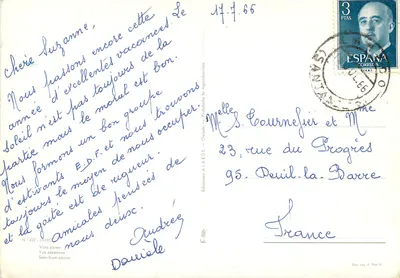 17.7.66
Chère Suzanne,
Nous passons encore cette
année d'excellentes vacances. Le
soleil n'est pas toujours de la
partie mais le moral est bon.
Nous formons un bon groupe
d'estivants E.D.F. et nous trouvons
toujours le moyen de nous occuper.
et la gaité est de rigueur.
amicales pensées de
nous deux.
Andrée
Danièle
3
PTAS
ESPAÑA
CORREOS
Melle S. Tournefier et Mme
23, rue du Progrès
95. Deuil-la-Barre
France